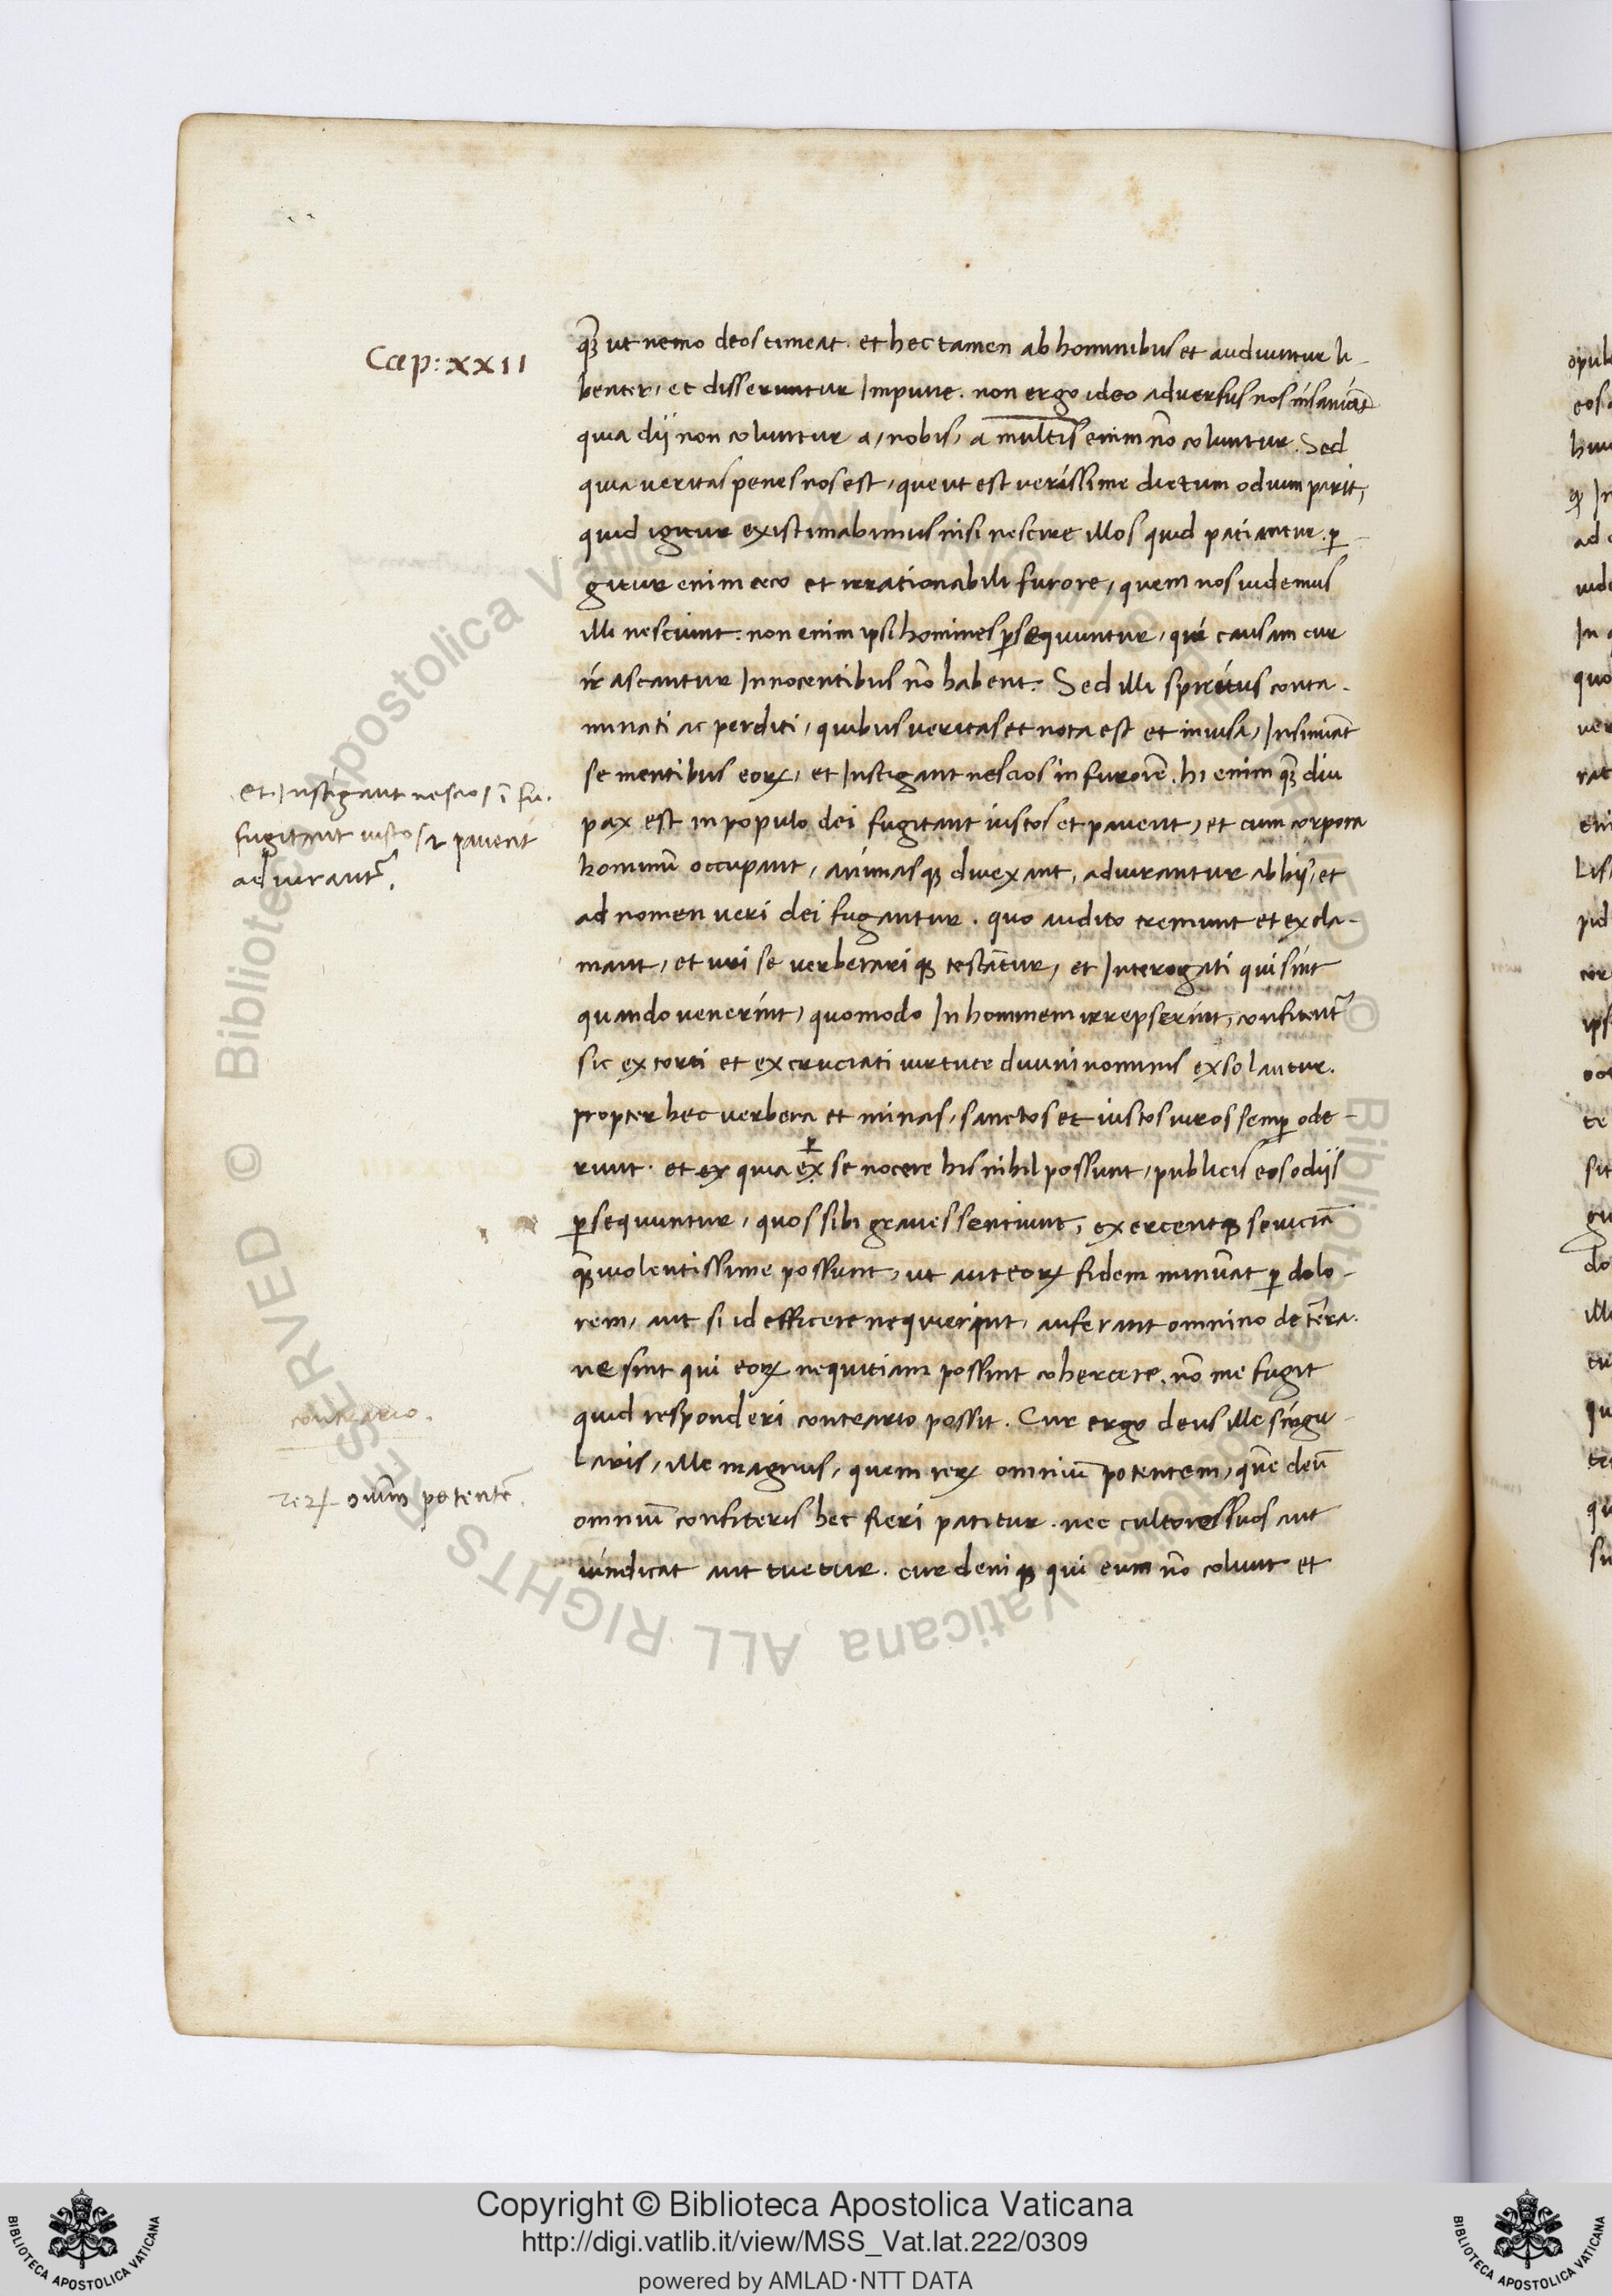 Cap: xxii
q̃ʒ ut nemo deos timeat. et hec tamen ab hominibus et audiuntur li-
benter, et disseruntur Impune. non ergo ideo aduersus nos insaniũt
quia dij non coluntur a, nobis, a multis enim nõ coluntur. Sed
quia ueritas penes nos est, que ut est uerissime dictum odium parit,
quid igitur existimabimus nisi nescire illos quid patiantur. ꝑ-
gitur enim ceco et irrationabili furore, quem nos uidemus
illi nesciunt: non enim ipsi homines ꝑsequuntur, qui causam cur
irascantur Innocentibus nõ habent. Sed illi spiritus conta-
minati ac perditi, quibus ueritas et nota est et inuisa, Insinuãt
se mentibus eoꝝ, et Instigant nescios in furorẽ. hi enim q̃ʒ diu
pax est in populo dei fugitant iustos et pauent, et cum corpora
hominũ occupant, animasqʒ diuexant, adiurantur ab hijs, et
ad nomen ueri dei fugantur. quo audito tremunt et excla-
mant, et uri se uerberariqʒ testãtur, et Interogati qui sint
quando uenerint, quomodo In hominem irrepserint, confitent᷑
sic extorti et excruciati uirtute diuini nominis exsolantur.
propter hec uerbera et minas, sanctos et iustos uiros semꝑ ode-
runt. et ex quia ex se nocere his nihil possunt, publicis eos odijs
ꝑsequuntur, quos sibi graues sentiunt, exercentqʒ seuiciã
q̃ʒ uiolentissime possunt, ut aut eoꝝ fidem minuãt ꝑ dolo-
rem, aut si id efficere nequierint, auferant omnino de terra.
ne sint qui eoꝝ nequitiam possint cohercere. nõ me fugit
quid responderi contrario possit. Cur ergo deus ille singu-
laris, ille magnus, quem reꝝ omniũ potentem, quẽ deũ
omniũ confiteris hec fieri patitur. nec cultores suos aut
uindicat aut tuetur. cur deniqʒ qui eum nõ colunt et
et Instigant nescios ĩ fu.
fugitant iustos et pauent
adiurant᷑.
contrario.
reꝝ omĩũ potentẽ.
Copyright © Biblioteca Apostolica Vaticana
http://digi.vatlib.it/view/MSS_Vat.lat.222/0309
powered by AMLAD·NTT DATA
BIBLIOTECA APOSTOLICA VATICANA
BIBLIOTECA APOSTOLICA VATICANA